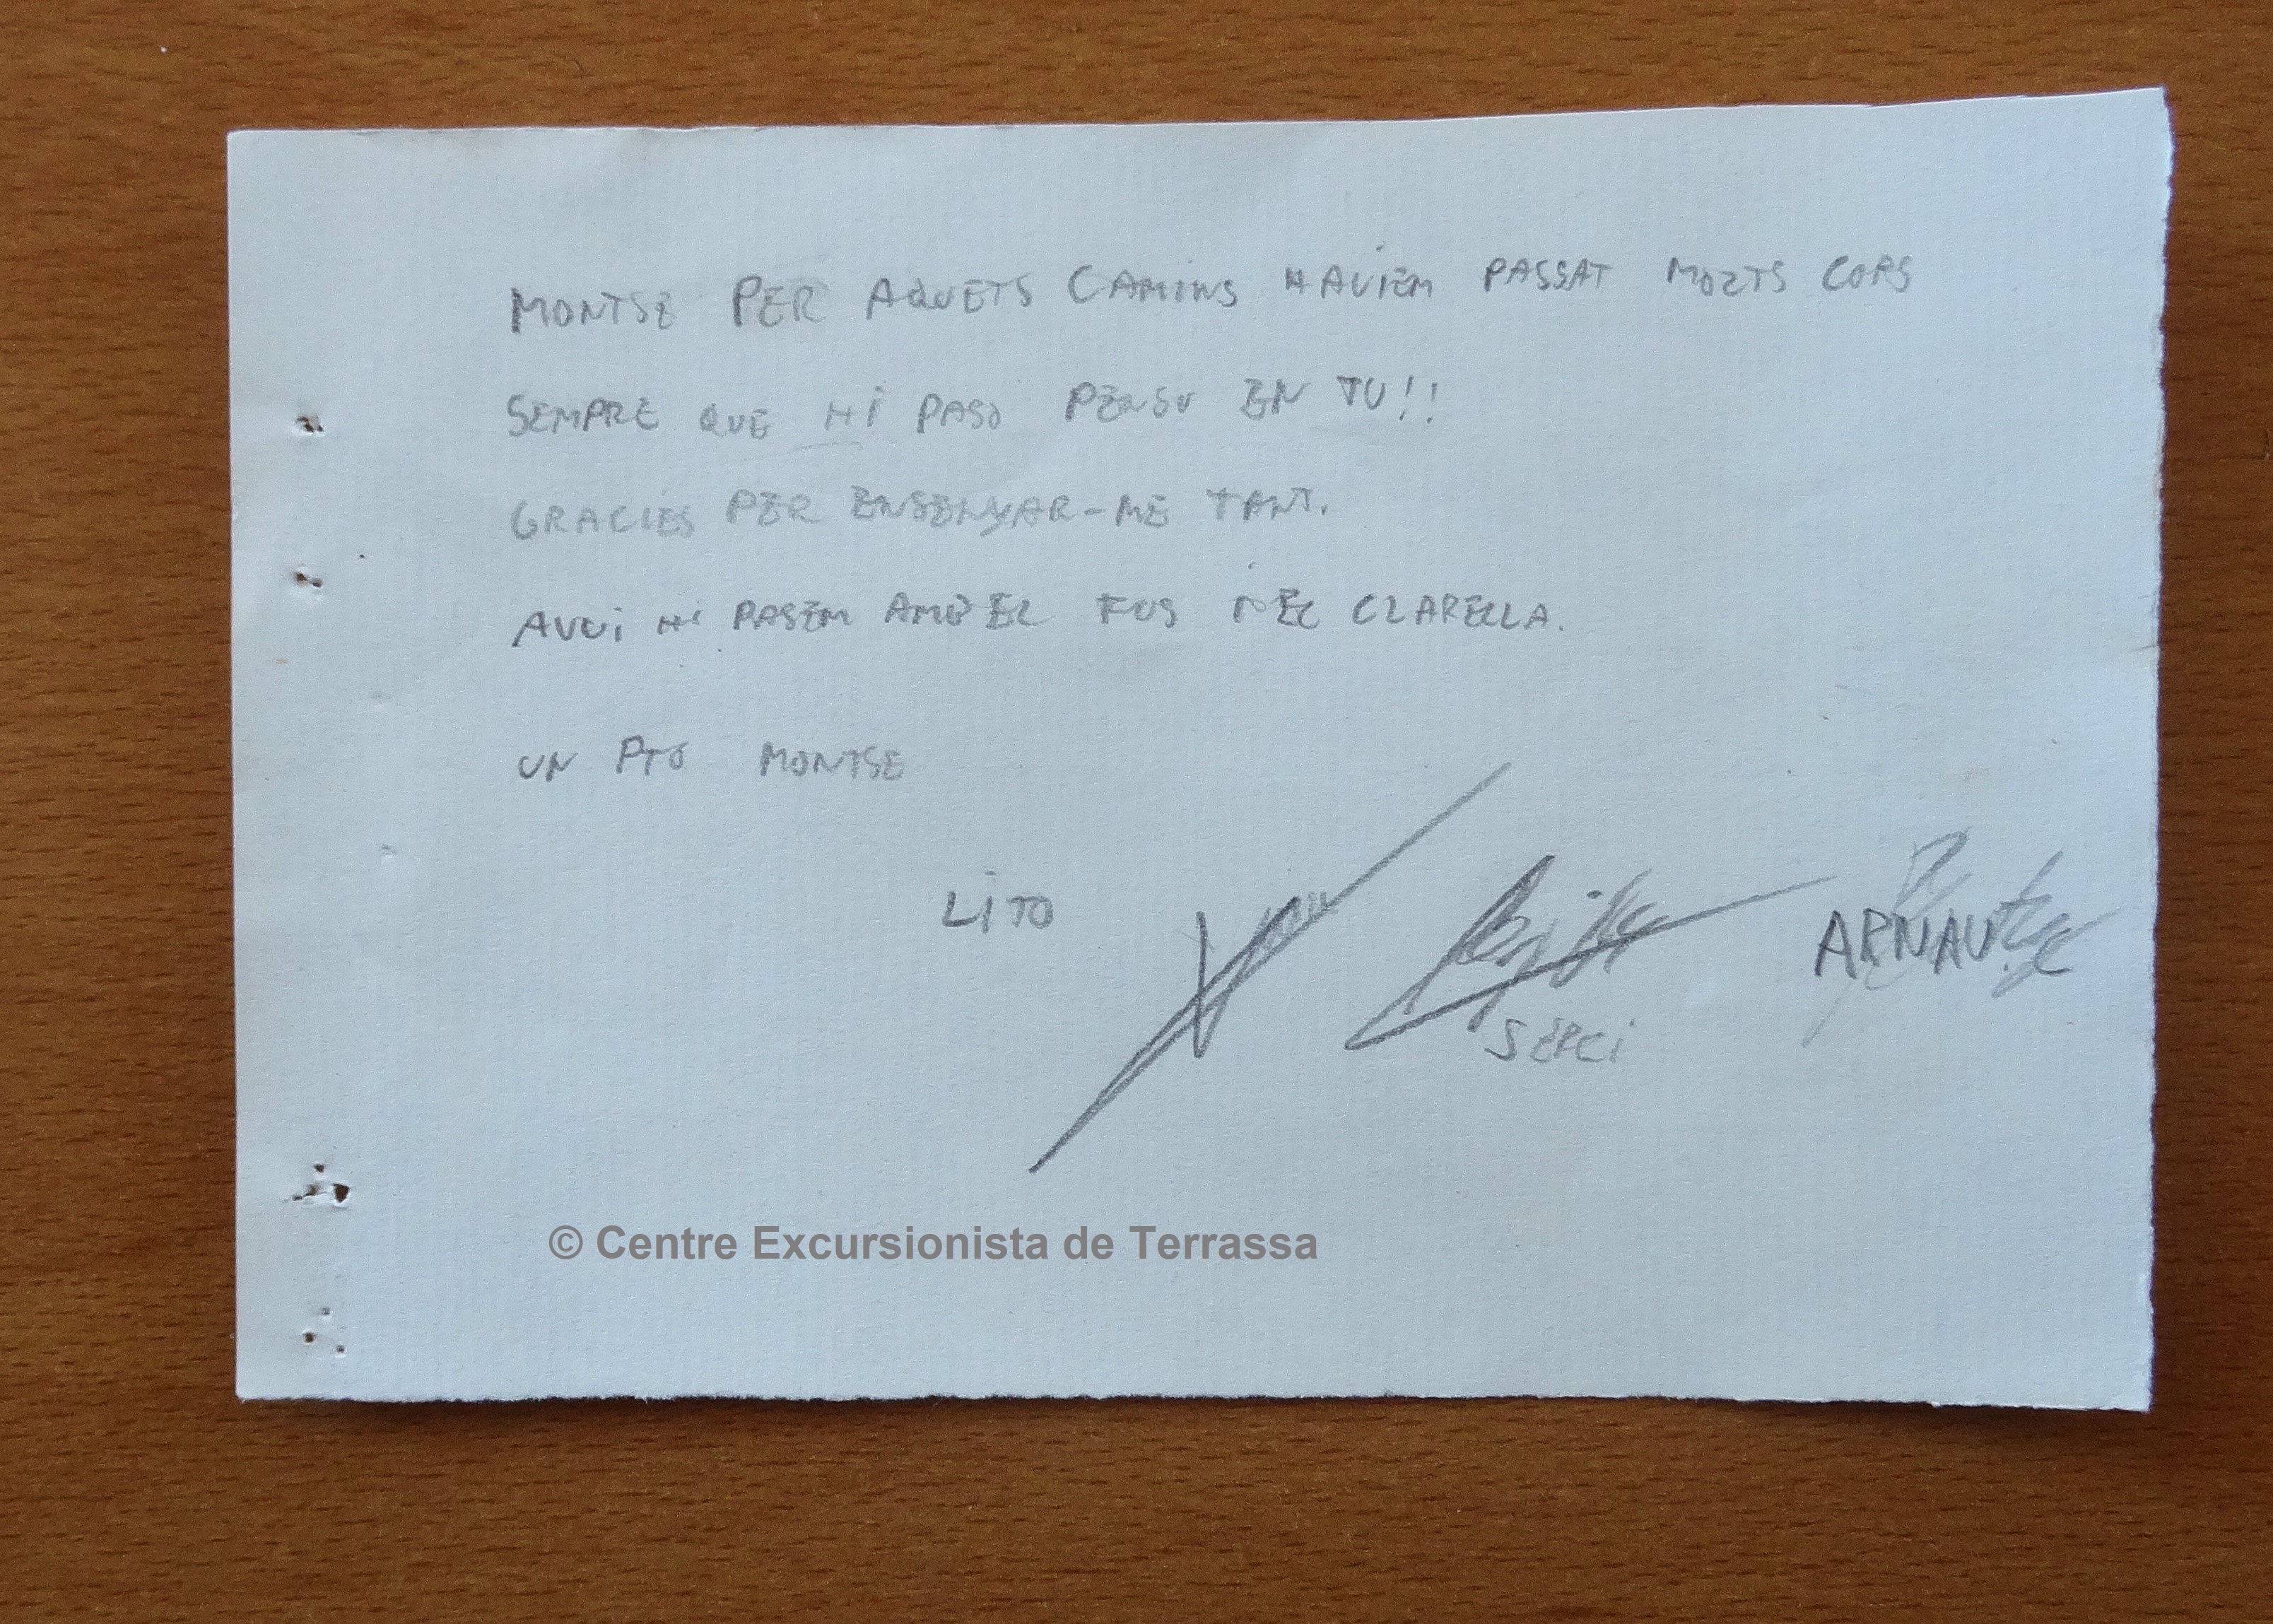 MONTSE PER AQUETS CAMINS HAVIEM PASSAT MOLTS COPS
SEMPRE QUE HI PASO PENSU EN TU!!
GRACIES PER ENSENYAR-ME TANT.
AVUI HI PASEM AMB EL FUS I EL CLARELLA.
UN PTO MONTSE
LITO
ARNAU
SERGI
© Centre Excursionista de Terrassa